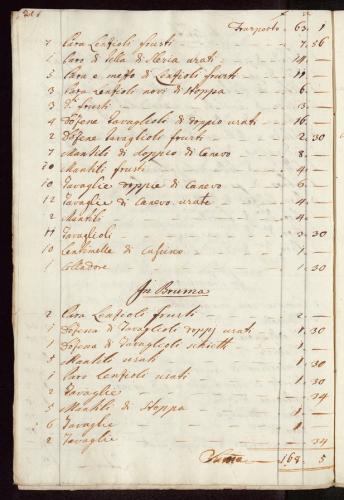 Trasporto 63. 1
7 Para Lenfioli frusti 7. 36
1 Paro di Tella di Slesia usati 14. —
5 Para e meffo di Lenfioli frusti 11 —
3 Para Lenfioli novi di Stoppa 6. —
3 D.i frusti 13. —
4 Dofene Tavaglioli di doppio usati 16. —
2 Dofene Tavaglioli frusti 2. 30
7 Mantili di doppio di Canevo 8. —
20 Mantili frusti 4 —
10 Tavaglie doppie di Canevo 6 —
12 Tavaglie di Canevo usate 4. —
2 Mantili 4. —
11 Tavaglioli 3. 30
10 Centenella di 1. —
1 1. 30
In Bruma
2 Para Lenfioli frusti 2. —
1 Dofena di Tavaglioli doppj usati 1. 30
1 Dofena di Tavaglioli schietti 1. 30
5 Mantili usati 1. 30
1 Paro Lenfioli usati 1. 30
2 Tavaglie — 34
5 Mantili di Stoppa 1. —
6 Tavaglie 1. —
2 Tavaglie — 34
Summa 168. 5